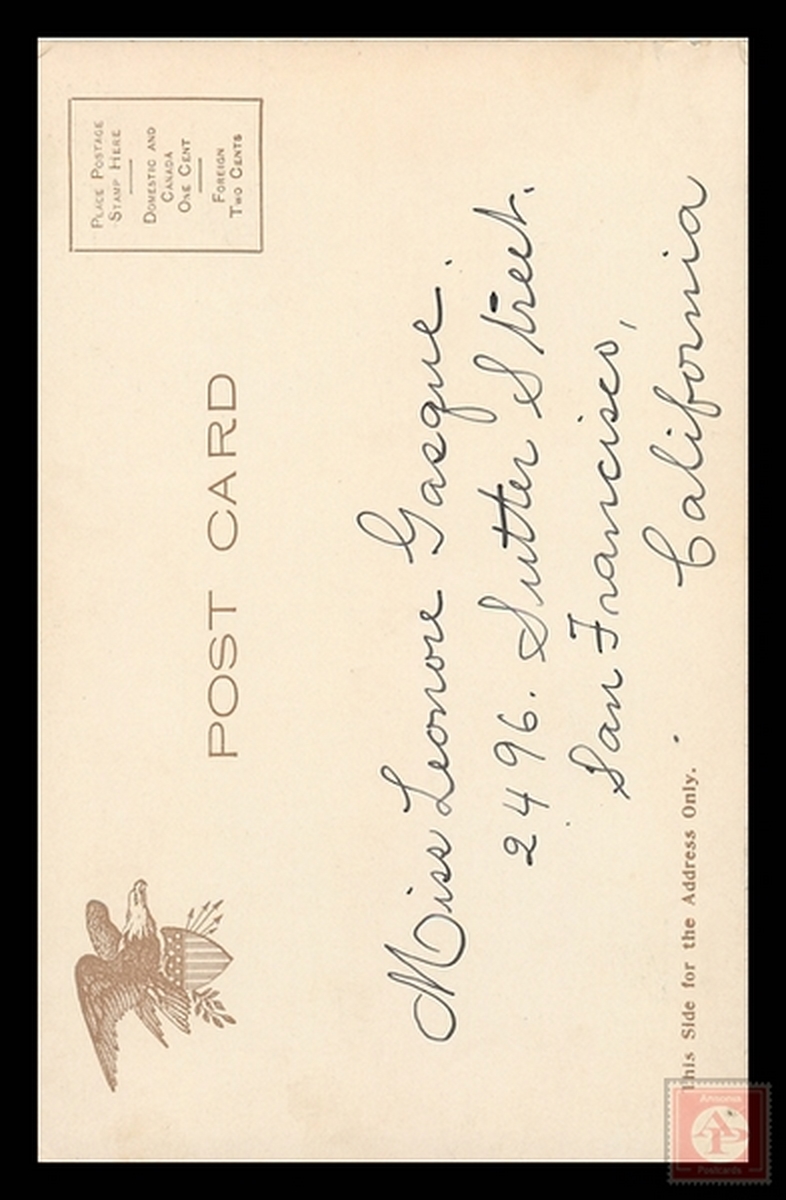 PLACE POSTAGE
STAMP HERE
DOMESTIC AND
CANADA
ONE CENT
FOREIGN
TWO CENTS
POST CARD
Miss Leonore Gasque.
2496. Sutter Street.
San Francisco,
California
This Side for the Address Only.
Ansonia
AP
Postcards